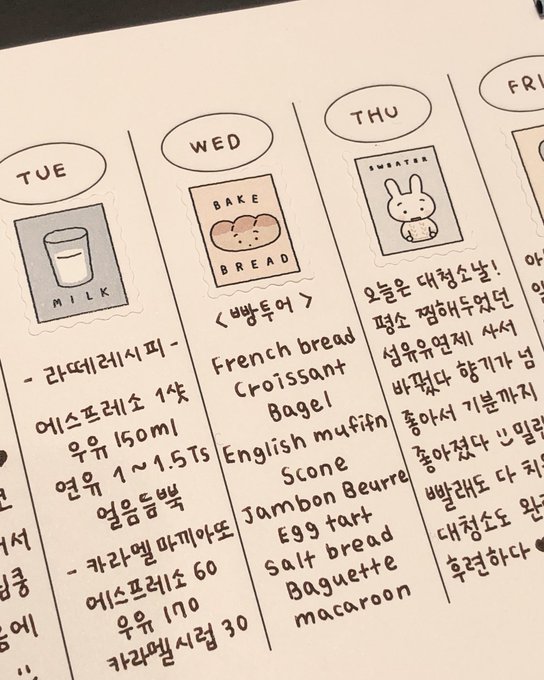 TUE
MILK
- 라떼레시피 -
에스프레소 1샷
우유 150ml
연유 1~1.5Ts
얼음듬뿍
- 카라멜마끼아또
에스프레소 60
우유 170
카라멜시럽 30
WED
BAKE
BREAD
<빵투어>
French bread
Croissant
Bagel
English mufifn
Scone
Jambon Beurre
Egg tart
Salt bread
Baguette
macaroon
THU
SWEATER
오늘은 대청소날!
평소 찜해두었던
섬유유연제 사서
바꿨다 향기가 넘
좋아서 기분까지
좋아졌다 밀린
빨래도 다
대청소도
후련하다
FRI